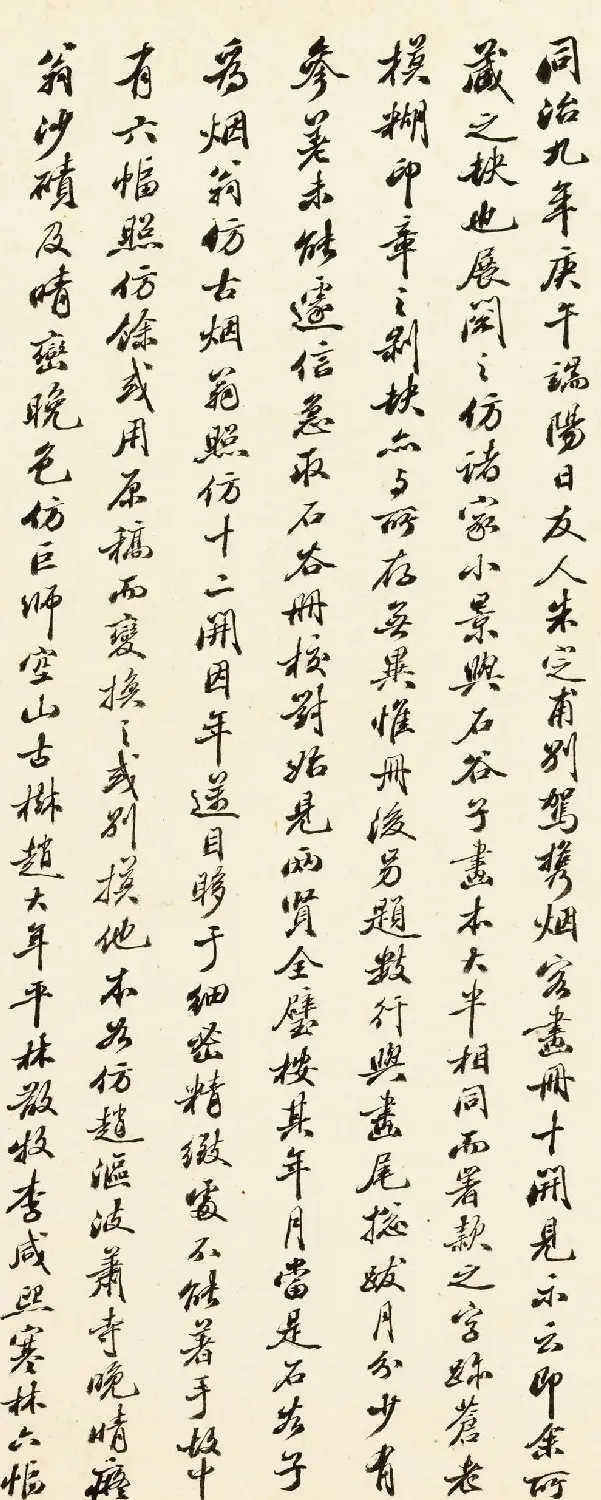 同治九年庚午端陽日友人朱定甫別駕携烟客畫冊十開見示云即余所
藏之缺也展閱之仿諸家小景與石谷子畫本大半相同而署款之字跡蒼老
模糊印章之剝缺亦与所存無異惟冊後另題數行與畫尾總跋月分少有
參差未能遽信急取石谷冊校對始見兩賢全璧按其年月當是石谷子
為烟翁仿古烟翁照仿十二開因年邁目眵于細密精緻處不能著手故中
有六幅照仿餘或用原稿而變換之或別摸他本如仿趙漚波蕭寺晚晴癡
翁沙磧及晴巒晚色仿巨師空山古樹趙大年平林散牧李咸熙寒林六幅